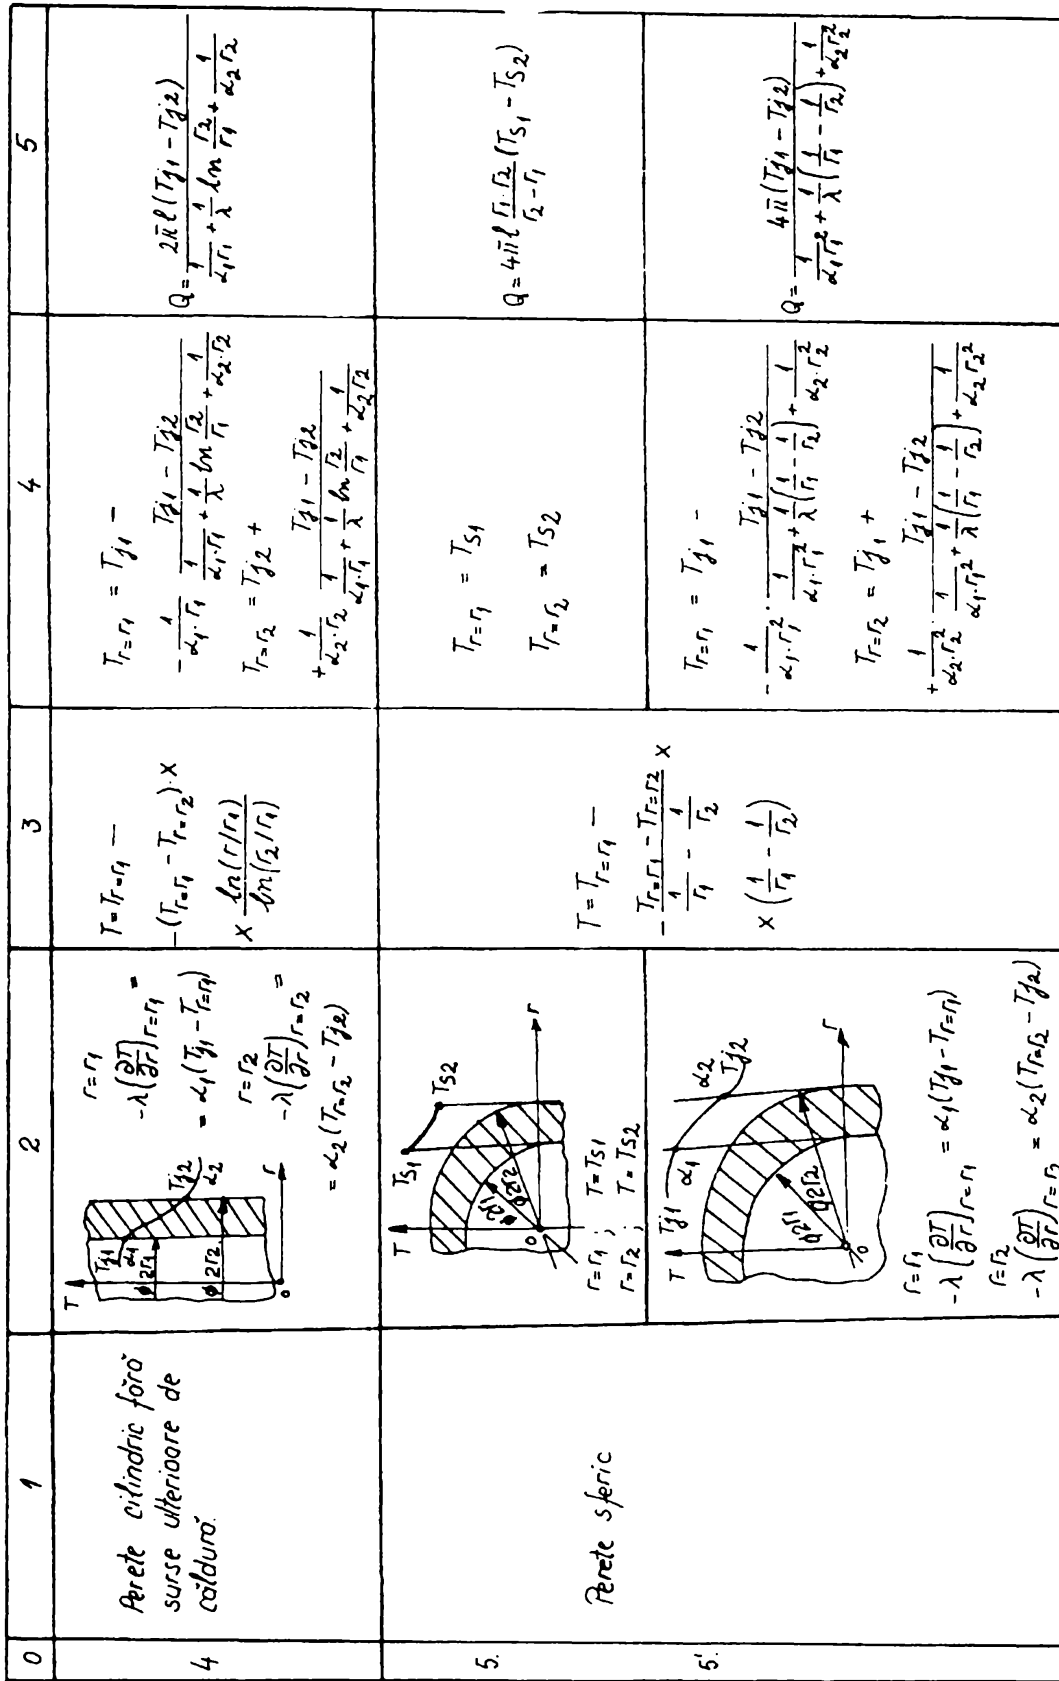 0 1 2 3 4 5
4
Perete cilindric fără
surse ulterioare de
căldură.
T
Tj1
α1
ϕ 2r1
ϕ 2r2
Tj2
α2
r
o
r=r1
-λ(∂T/∂r)r=r1 =
= α1(Tj1 - Tr=r1)
r=r2
-λ(∂T/∂r)r=r2 =
= α2(Tr=r2 - Tj2)
T=Tr=r1 —
-(Tr=r1 - Tr=r2)·x
x ln(r/r1)/ln(r2/r1)
Tr=r1 = Tj1 -
- 1/(α1·r1) · (Tj1 - Tj2)/(1/(α1·r1) + 1/λ ln r2/r1 + 1/(α2·r2))
Tr=r2 = Tj2 +
+ 1/(α2·r2) · (Tj1 - Tj2)/(1/(α1·r1) + 1/λ ln r2/r1 + 1/(α2r2))
Q= 2πl(Tj1 - Tj2)/(1/(α1r1) + 1/λ ln r2/r1 + 1/(α2r2))
5.
Perete sferic
T
TS1
TS2
ϕ2r1
ϕ2r2
o
r
r=r1 ; T=TS1
r=r2 ; T=TS2
T=Tr=r1 —
- (Tr=r1 - Tr=r2)/(1/r1 - 1/r2) x
x (1/r1 - 1/r2)
Tr=r1 = TS1
Tr=r2 = TS2
Q=4πl (r1·r2)/(r2-r1) (TS1 - TS2)
5'.
T
Tj1
α1
α2
Tj2
ϕ2r1
ϕ2r2
o
r
r=r1
-λ(∂T/∂r)r=r1 = α1(Tj1 - Tr=r1)
r=r2
-λ(∂T/∂r)r=r2 = α2(Tr=r2 - Tj2)
Tr=r1 = Tj1 -
- 1/(α1·r1²) · (Tj1 - Tj2)/(1/(α1·r1²) + 1/λ(1/r1 - 1/r2) + 1/(α2·r2²))
Tr=r2 = Tj1 +
+ 1/(α2·r2²) · (Tj1 - Tj2)/(1/(α1·r1²) + 1/λ(1/r1 - 1/r2) + 1/(α2r2²))
Q= 4π(Tj1 - Tj2)/(1/(α1r1²) + 1/λ(1/r1 - 1/r2) + 1/(α2r2²))